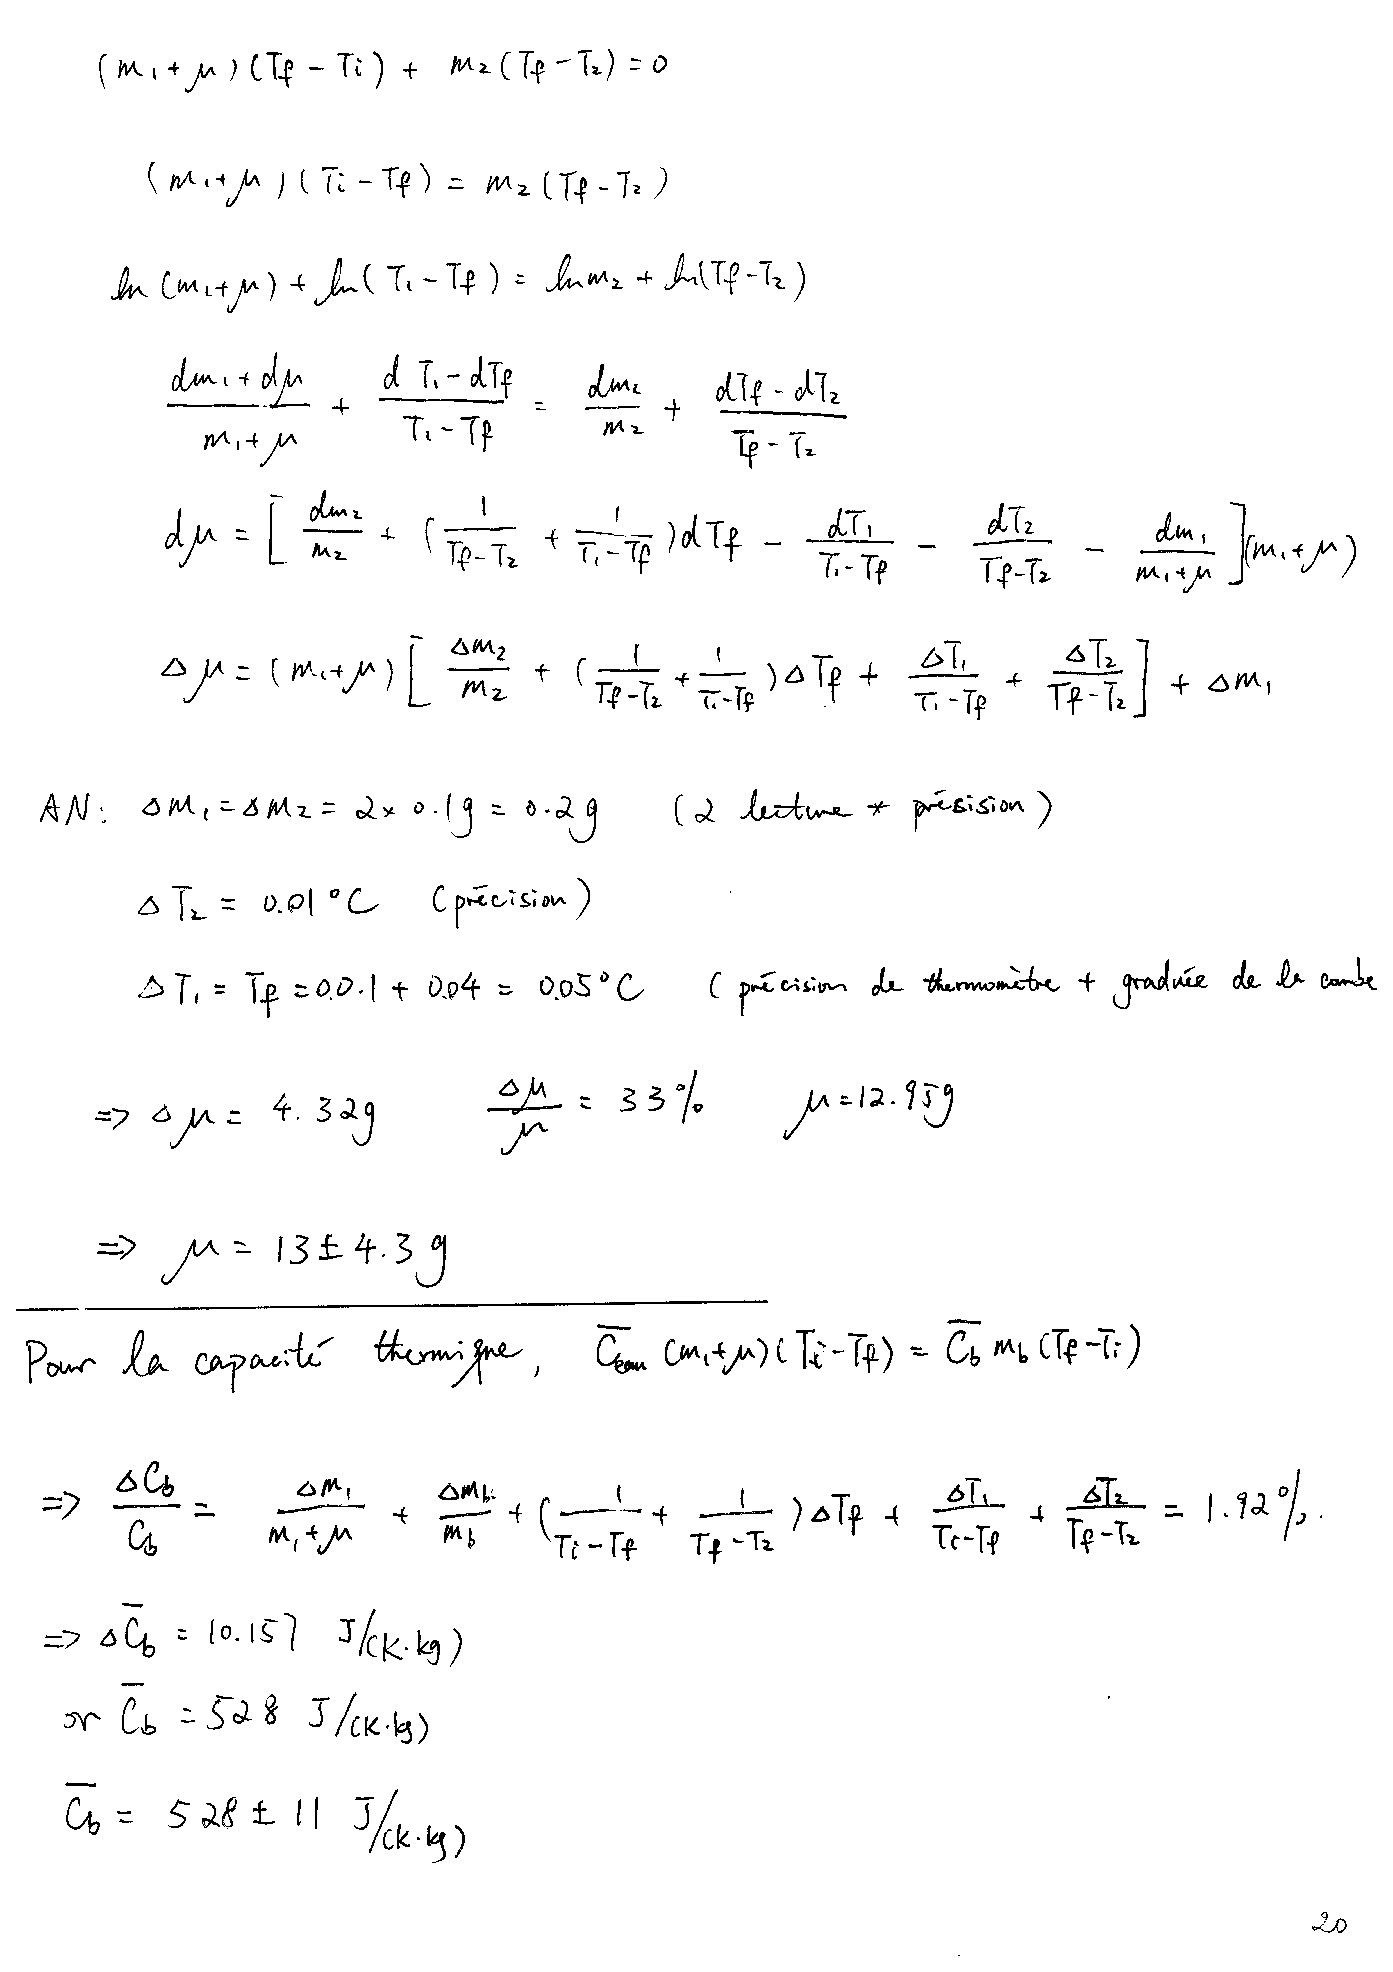 (m₁+μ)(Tf - Ti) + m₂(Tf - T₂) = 0
(m₁+μ)(Ti - Tf) = m₂(Tf - T₂)
ln(m₁+μ) + ln(T₁ - Tf) = ln m₂ + ln(Tf - T₂)
(dm₁+dμ)/(m₁+μ) + (dT₁ - dTf)/(T₁ - Tf) = dm₂/m₂ + (dTf - dT₂)/(Tf - T₂)
dμ = [dm₂/m₂ + (1/(Tf-T₂) + 1/(T₁-Tf))dTf - dT₁/(T₁-Tf) - dT₂/(Tf-T₂) - dm₁/(m₁+μ)](m₁+μ)
Δμ = (m₁+μ)[Δm₂/m₂ + (1/(Tf-T₂) + 1/(T₁-Tf))ΔTf + ΔT₁/(T₁-Tf) + ΔT₂/(Tf-T₂)] + Δm₁
AN: Δm₁ = Δm₂ = 2×0.1g = 0.2g (2 lecture * présision)
ΔT₂ = 0.01°C (précision)
ΔT₁ = Tf = 00.1 + 0.04 = 0.05°C (précision de thermomètre + graduée de la combe
=> Δμ = 4.32g Δμ/μ = 33% μ = 12.95g
=> μ = 13 ± 4.3g
Pour la capacité thermique, C̅eau (m₁+μ)(Ti - Tf) = C̅b mb (Tf - Ti)
=> ΔCb/Cb = Δm₁/(m₁+μ) + Δmb/mb + (1/(Ti-Tf) + 1/(Tf-T₂))ΔTf + ΔT₁/(Ti-Tf) + ΔT₂/(Tf-T₂) = 1.92%.
=> ΔC̅b = 10.157 J/(K·kg)
or C̅b = 528 J/(K·kg)
C̅b = 528 ± 11 J/(K·kg)
20